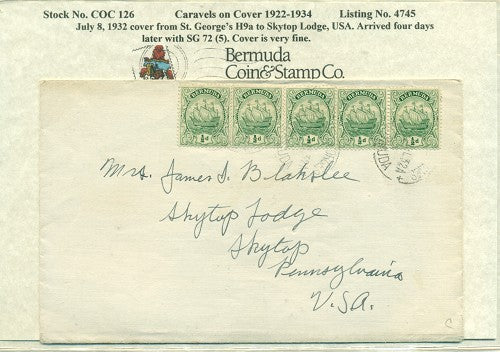 Stock No. COC 126 Caravels on Cover 1922-1934 Listing No. 4745
July 8, 1932 cover from St. George's H9a to Skytop Lodge, USA. Arrived four days
later with SG 72 (5). Cover is very fine.
Bermuda
Coin & Stamp Co.
BERMUDA BERMUDA BERMUDA BERMUDA BERMUDA
½d ½d ½d ½d ½d
Mrs. James I. Blakslee
Skytop Lodge
Skytop
Pennsylvania
U.S.A.
C